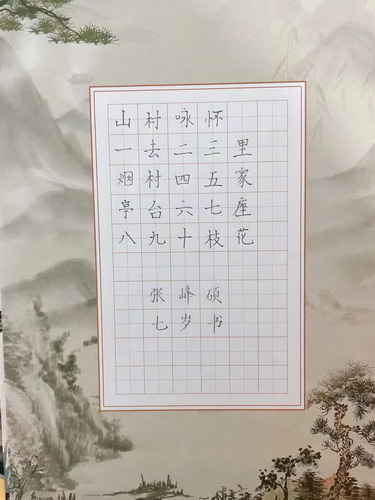 山村咏怀
一去二三里
烟村四五家
亭台六七座
八九十枝花
张峰硕
七岁书